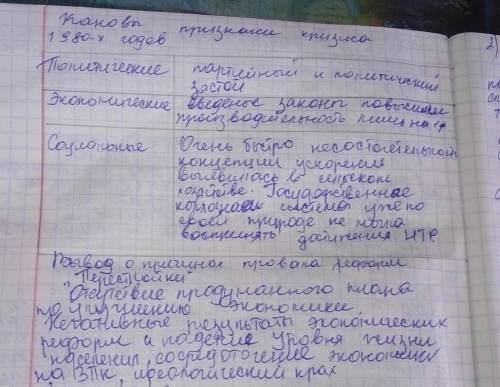 Каковы признаки кризиса
1980-х годов
Политические партийный и политический
застой
Экономические введеные законы повысили
производительность лишь на 1%
Социальные Очень быстро несостоятельность
концепции ускорения
выявилась в сельском
хозяйстве. Государственное
колхозная система уже по
своей природе не могла
воспринять достижения НТР.
Вывод о причинах провала реформ
"Перестройки"
Отсутствие продуманного плана
по улучшению экономики.
Негативные результаты экономических
реформ и падение уровня жизни
населения, сосредоточение экономики
на ВПК, идеологический крах
2)